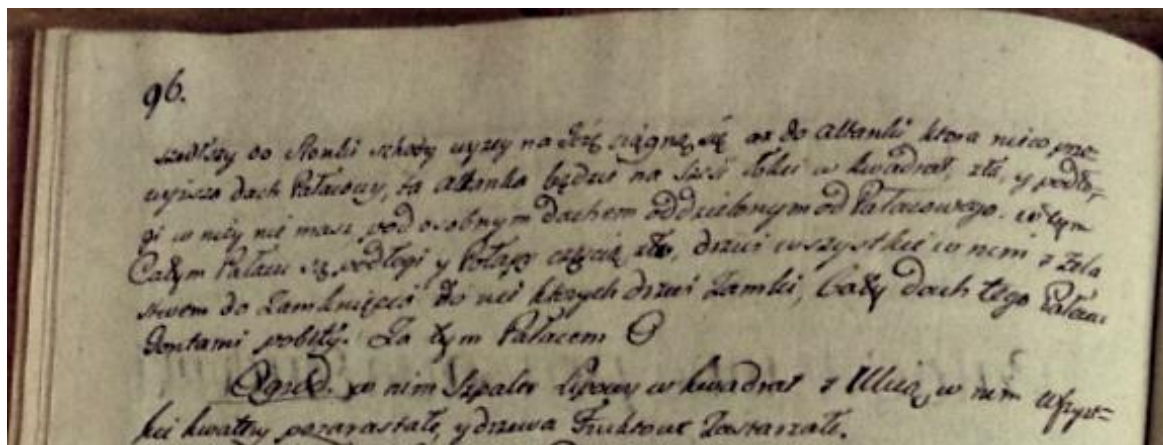 96.
szedłszy do Sionki schody wyzey na Gorę ciągną się az do Altanki ktora nieco prze-
wyzsza dach Pałacowy, ta Altanka będzie na szesc łokci w kwadrat, zła, y podło-
gi w niey nie masz pod osobnym dachem oddzielonym od Pałacowego. w tym
Całym Pałacu są podłogi y Połapy częscią złe, drzwi wszystkie w nem z Zela
stwem do Zamknięcia do nie ktorych drzwi Zamki, Cały dach tego Pałacu
Gontami pobity. Za tym Pałacem
Ogrod. w nim Szpaler Lipowy w kwadrat z Ulicą, w nem wszyst-
kie kwatery pozarastałe, y drzewa Fruktowe Zastarzałe.